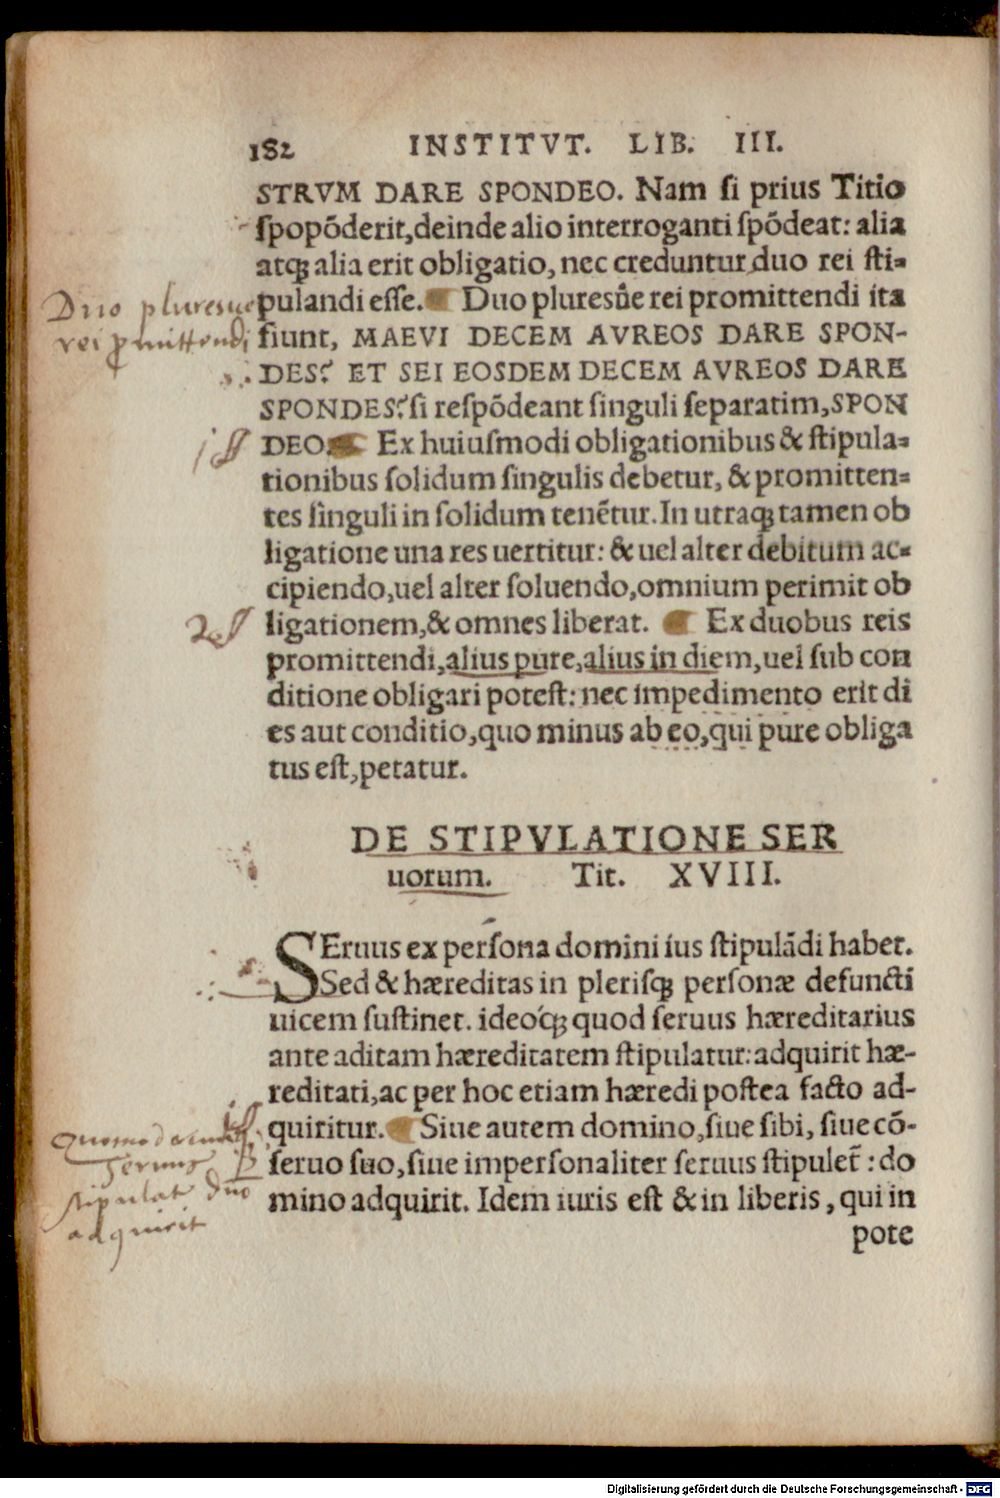 182 INSTITVT. LIB. III.
STRVM DARE SPONDEO. Nam ſi prius Titio
ſpopõderit, deinde alio interroganti ſpõdeat: alia
atqꝫ alia erit obligatio, nec creduntur duo rei ſti-
pulandi eſſe. Duo pluresûe rei promittendi ita
fiunt, MAEVI DECEM AVREOS DARE SPON-
DES? ET SEI EOSDEM DECEM AVREOS DARE
SPONDES? ſi reſpõdeant ſinguli ſeparatim, SPON
DEO. Ex huiuſmodi obligationibus & ſtipula-
tionibus ſolidum ſingulis debetur, & promitten-
tes ſinguli in ſolidum tenẽtur. In utraqꝫ tamen ob
ligatione una res uertitur: & uel alter debitum ac-
cipiendo, uel alter ſoluendo, omnium perimit ob
ligationem, & omnes liberat. Ex duobus reis
promittendi, alius pure, alius in diem, uel ſub con
ditione obligari poteſt: nec impedimento erit di
es aut conditio, quo minus ab eo, qui pure obliga
tus eſt, petatur.
DE STIPVLATIONE SER
uorum. Tit. XVIII.
SEruus ex perſona domini ius ſtipulãdi habet.
Sed & hæreditas in pleriſqꝫ perſonæ defuncti
uicem ſuſtinet. ideóqꝫ quod ſeruus hæreditarius
ante aditam hæreditatem ſtipulatur: adquirit hæ-
reditati, ac per hoc etiam hæredi poſtea facto ad-
quiritur. Siue autem domino, ſiue ſibi, ſiue cõ-
ſeruo ſuo, ſiue imperſonaliter ſeruus ſtipulet̃: do
mino adquirit. Idem iuris eſt & in liberis, qui in
pote
Duo pluresue
rei ꝓmittendi
1 §
2 §
seruus
stipulat duo
adquirit
Digitalisierung gefördert durch die Deutsche Forschungsgemeinschaft - DFG